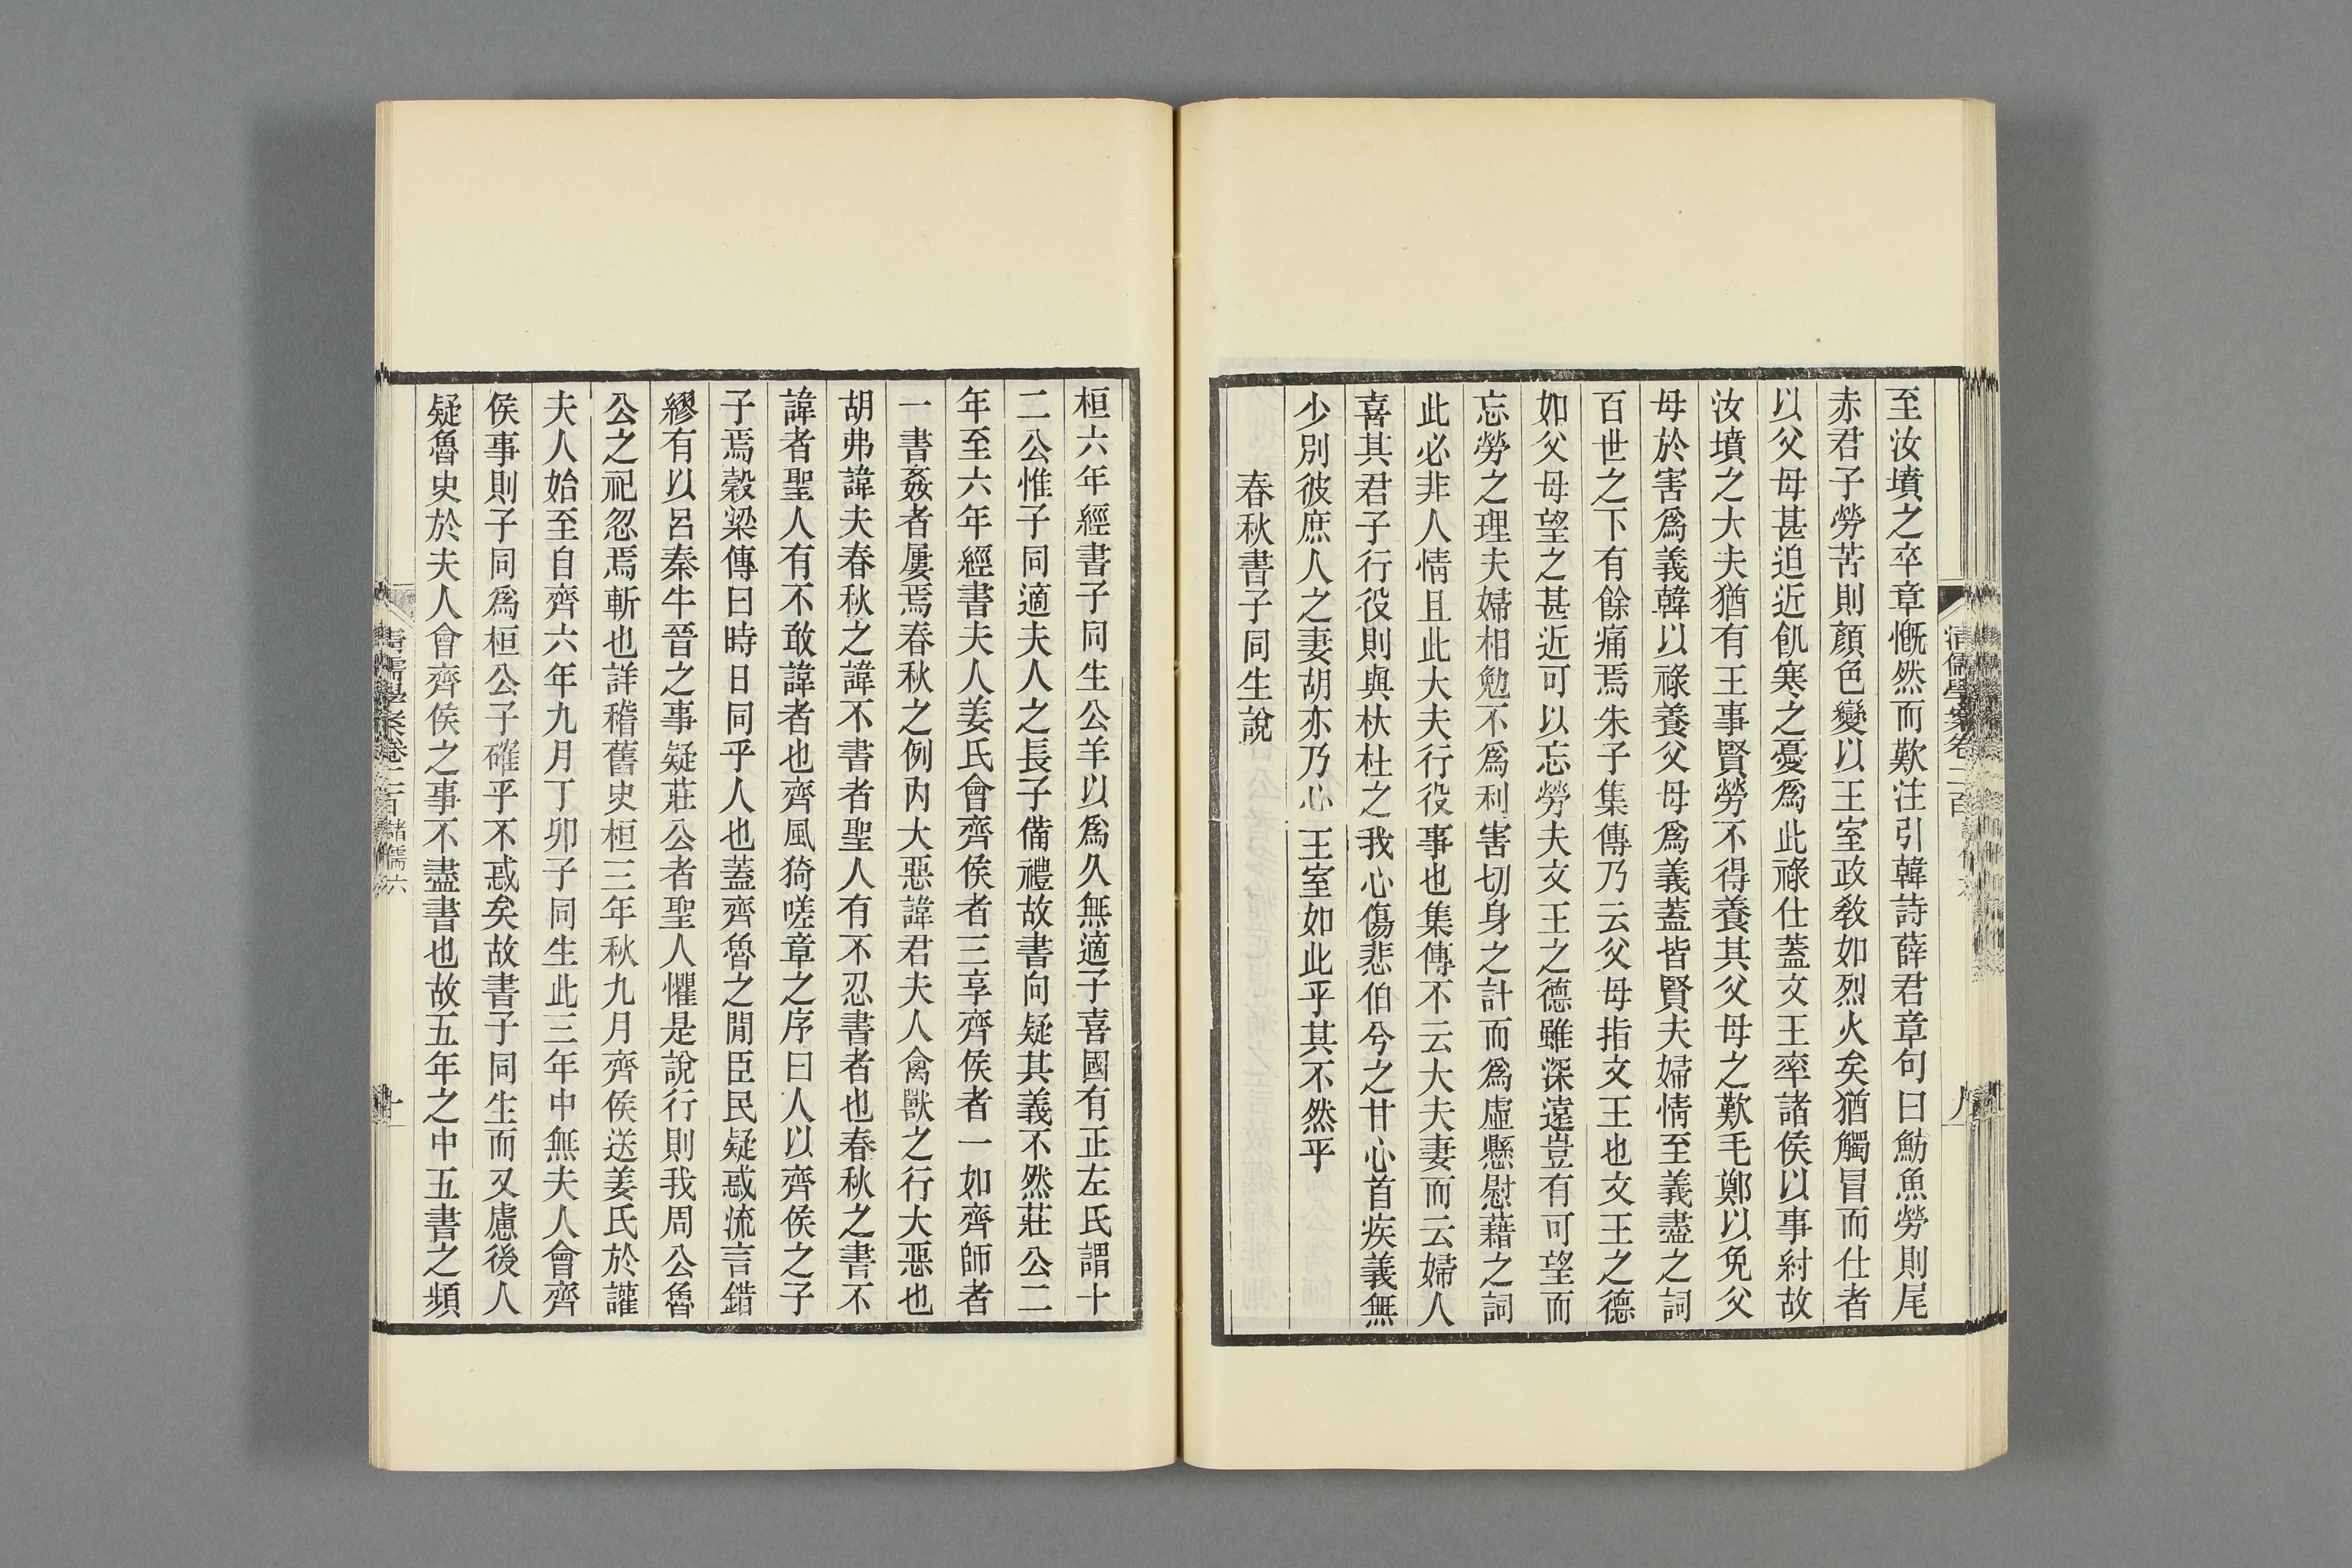 至汝墳之卒章慨然而歎注引韓詩薛君章句曰魴魚勞則尾
赤君子勞苦則顏色變以王室政教如烈火矣猶觸冒而仕者
以父母甚迫近飢寒之憂爲此祿仕蓋文王率諸侯以事紂故
汝墳之大夫猶有王事賢勞不得養其父母之歎毛鄭以免父
母於害爲義韓以祿養父母爲義蓋皆賢夫婦情至義盡之詞
百世之下有餘痛焉朱子集傳乃云父母指文王也文王之德
如父母望之甚近可以忘勞夫文王之德雖深遠豈有可望而
忘勞之理夫婦相勉不爲利害切身之計而爲虛懸慰藉之詞
此必非人情且此大夫行役事也集傳不云大夫妻而云婦人
喜其君子行役則與杕杜之我心傷悲伯兮之甘心首疾義無
少別彼庶人之妻胡亦乃心王室如此乎其不然乎
春秋書子同生說
桓六年經書子同生公羊以爲久無適子喜國有正左氏謂十
二公惟子同適夫人之長子備禮故書向疑其義不然莊公二
年至六年經書夫人姜氏會齊侯者三享齊侯者一如齊師者
一書姦者屢焉春秋之例內大惡諱君夫人禽獸之行大惡也
胡弗諱夫春秋之諱不書者聖人有不忍書者也春秋之書不
諱者聖人有不敢諱者也齊風猗嗟章之序曰人以齊侯之子
子焉穀梁傳曰時日同乎人也蓋齊魯之閒臣民疑惑流言錯
繆有以呂秦牛晉之事疑莊公者聖人懼是說行則我周公魯
公之祀忽焉斬也詳稽舊史桓三年秋九月齊侯送姜氏於讙
夫人始至自齊六年九月丁卯子同生此三年中無夫人會齊
侯事則子同爲桓公子確乎不惑矣故書子同生而又慮後人
疑魯史於夫人會齊侯之事不盡書也故五年之中五書之頻
清儒學案卷二百 諸儒六
十